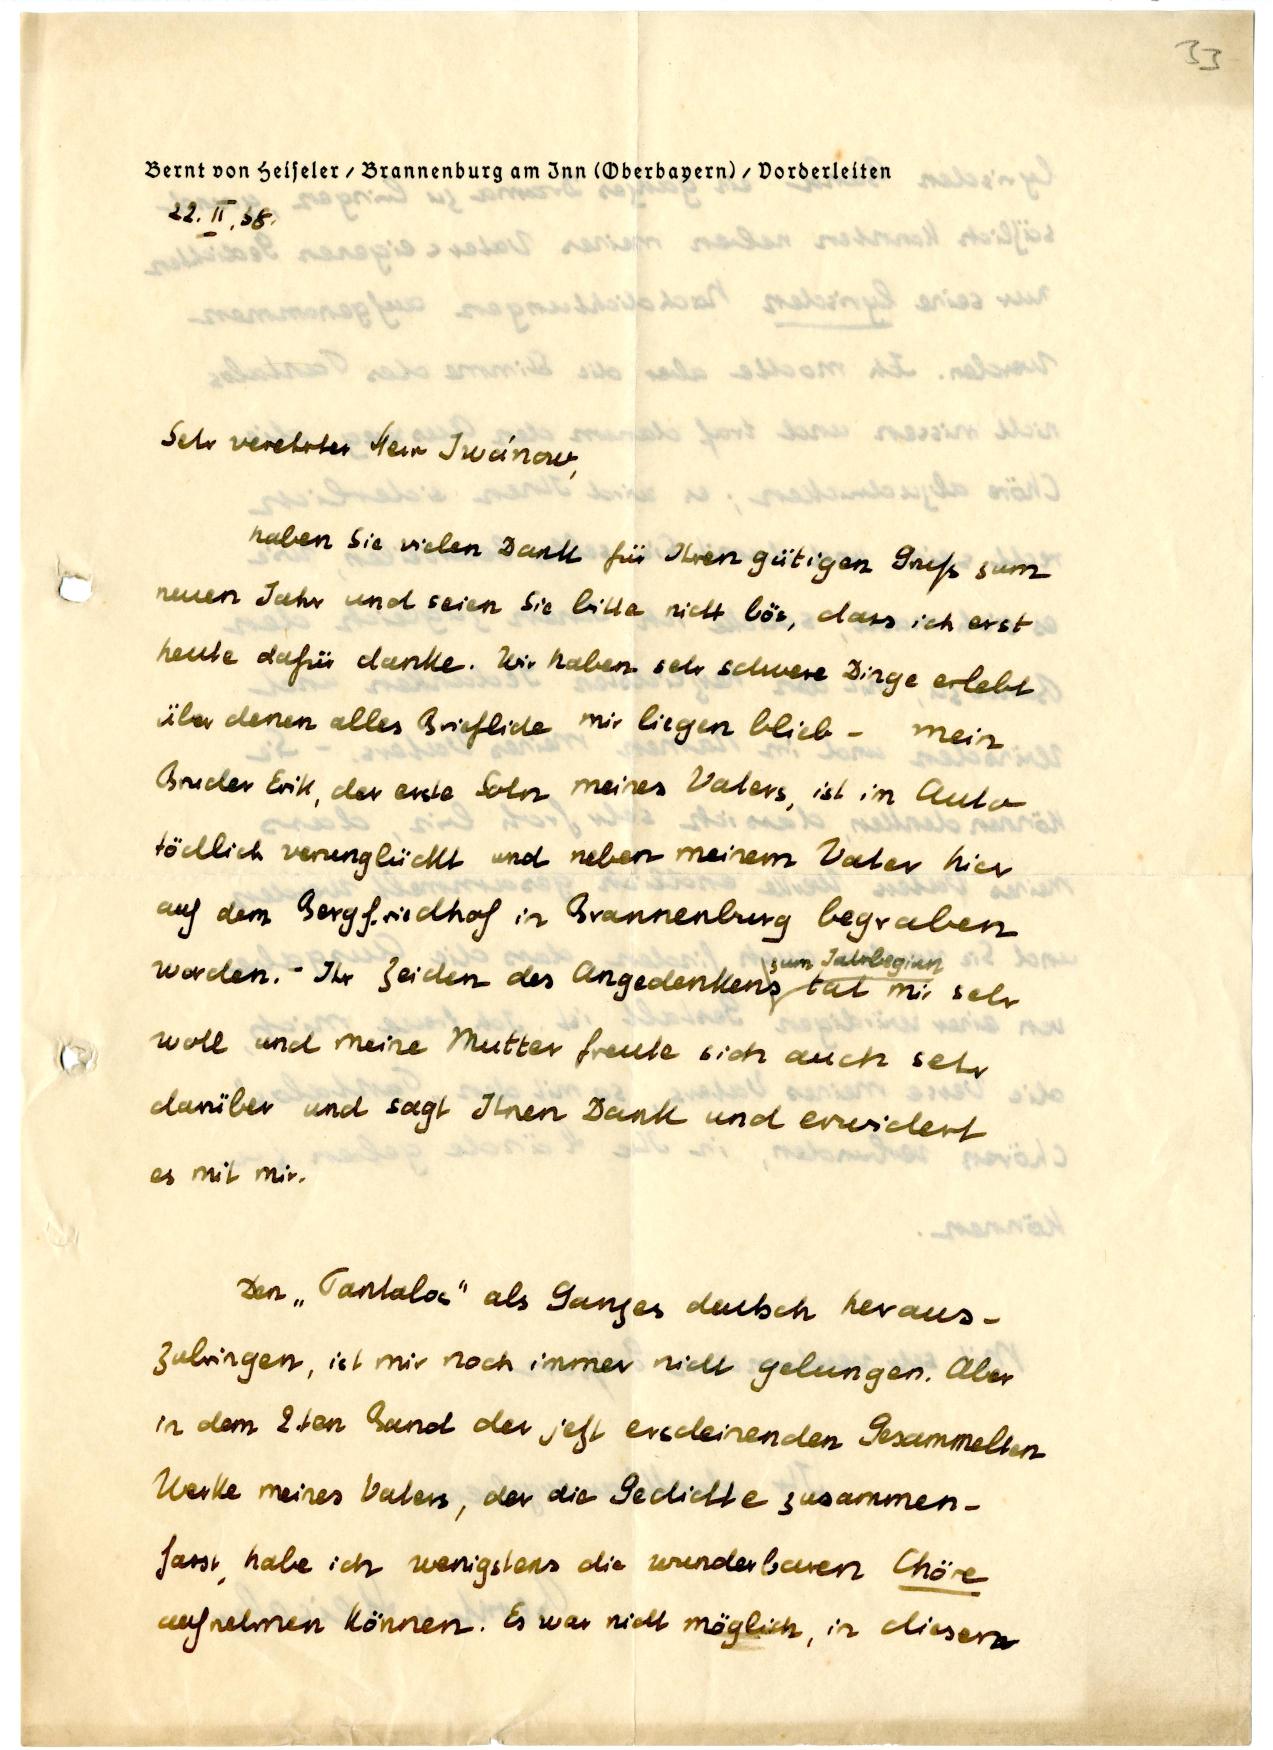 33
Bernt von Heiseler / Brannenburg am Inn (Oberbayern) / Vorderleiten
22. II. 38.
Sehr verehrter Herr Iwánow,
haben Sie vielen Dank für Ihren gütigen Gruß zum
neuen Jahr und seien Sie bitte nicht bös, dass ich erst
heute dafür danke. Wir haben sehr schwere Dinge erlebt
über denen alles Briefliche mir liegen blieb – mein
Bruder Erik, der erste Sohn meines Vaters, ist im Auto
tödlich verunglückt und neben meinem Vater hier
auf dem Bergfriedhof in Brannenburg begraben
worden. – Ihr Zeichen des Angedenkens zum Jahrbeginn tat mir sehr
wohl und meine Mutter freute sich auch sehr
darüber und sagt Ihnen Dank und erwidert
es mit mir.
Den „Tantalos" als Ganzes deutsch heraus-
zubringen, ist mir noch immer nicht gelungen. Aber
in dem 2ten Band der jetzt erscheinenden Gesammelten
Werke meines Vaters, der die Gedichte zusammen-
fasst, habe ich wenigstens die wunderbaren Chöre
aufnehmen können. Es war nicht möglich, in diesem